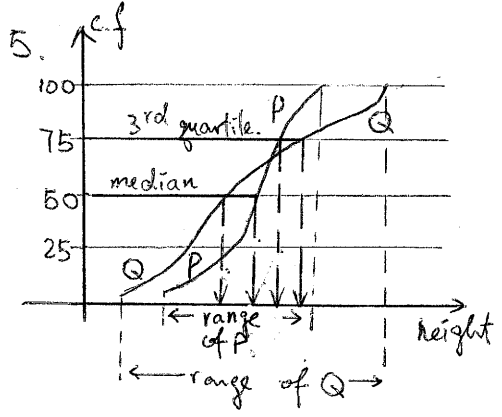 5.
c.f
100
P
3rd quartile.
Q
75
median
50
25
Q
P
range
of P
height
range of Q